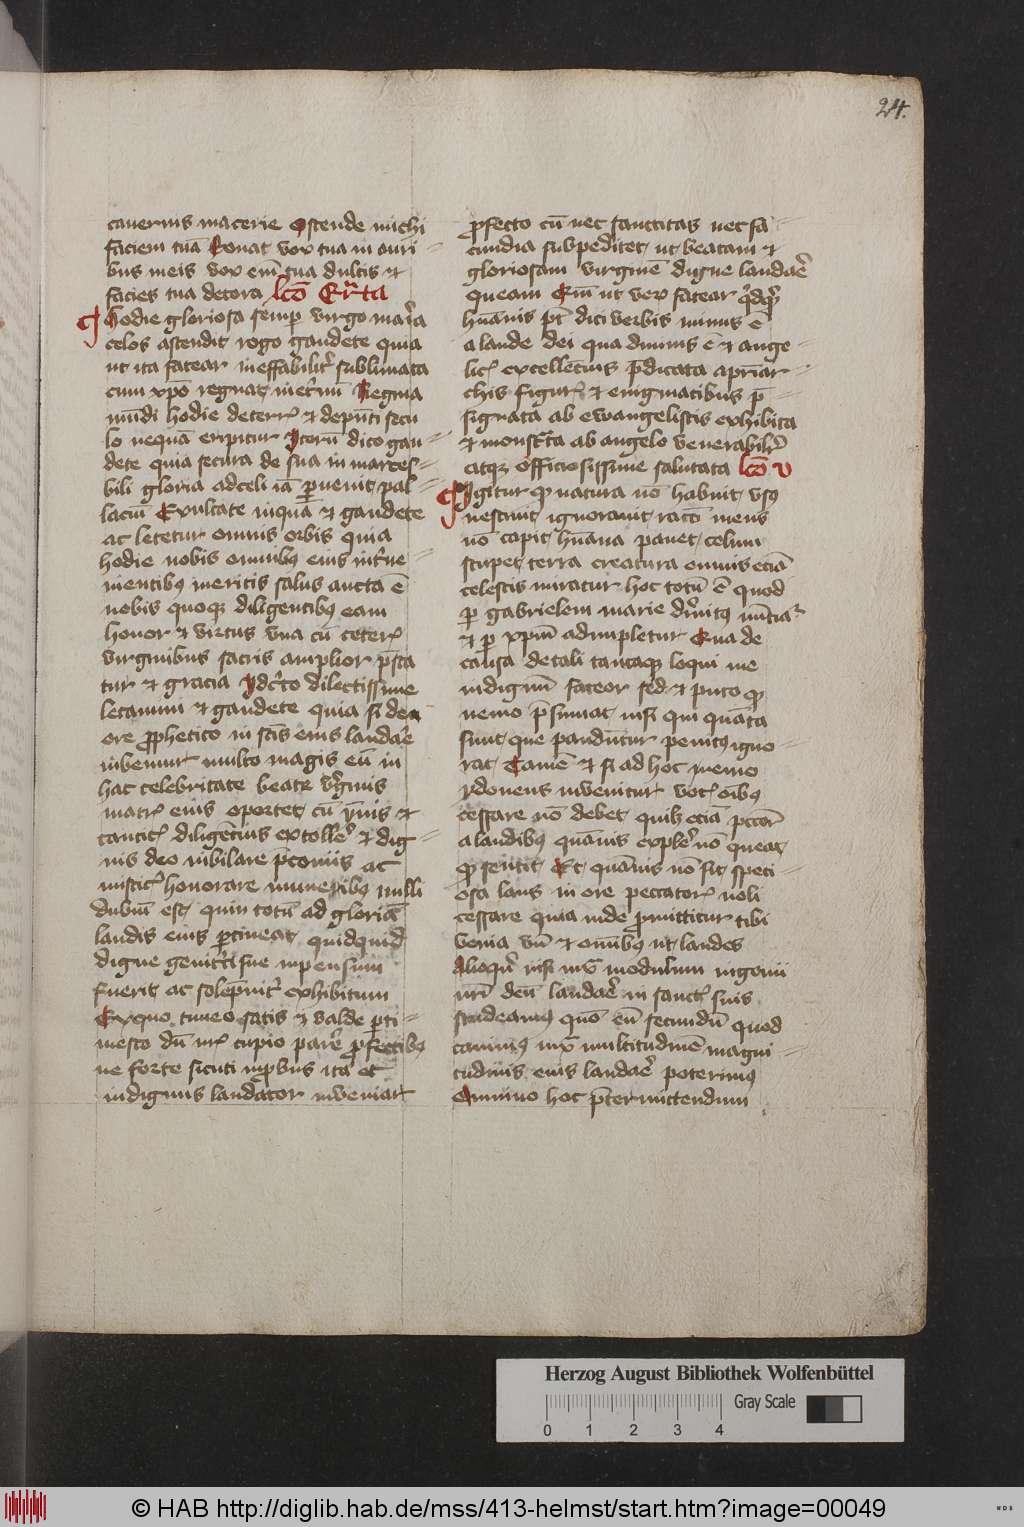 24.
cauernis macerie Ostende michi
faciem tuā Sonat vox tua in auri-
bus meis vox em̄ tua dulcis et
facies tua decora lcō Qr̄ta
Hodie gloriosa semp virgo mar̄ia
celos ascendit rogo gaudete quia
ut ita fatear ineffabilit sublimata
cum xpō regnat inet̄nū Regina
mūdi hodie deterr et dep̄nti secu
lo nequā eripitur Itoꝝ dico gau-
dete quia secura de sua inmarces-
bili gloria adceli iā ꝑuenit pal-
laciū Exultate inquā et gaudete
ac letetur omnis orbis quia
hodie nobis omnibꝰ eius int̄ue-
nientibꝰ meritis salus aucta ē
nobis quoqꝫ diligentibꝰ eam
honor et virtus vna cū ceteꝝ
virginibus sacris amplior p̄sta
tur et gracia Idc̄to dilectissime
letamini et gaudete quia si de
ore ꝓphetico in scīs eius laudaꝛe
iubemur multo magis eū in
hac celebritate beate v̄ginis
matꝝ eius oportet cū ȳnis et
cantic diligēcius extolle et dig-
nis deo iubilare p̄coniis ac
mistic honorare muneribꝰ nulli
dubiū est quin totū ad gloriā
laudis eius ꝑtineat quidquid
digne genitci sue inpensum
fuerit ac solēpnit exhibitum
Exquo timeo satis et valde ꝑti-
mesco dū nr̄ cupio pare ꝓfectibꝰ
ne forte sicuti inpbus ita et
indignus laudator inueniar
ꝓfecto cū nec sanctitas nec fa-
cundia subpeditet ut beatam et
gloriosam virginē digne laudaꝛe
queam Qm̄ ut verx fatear
hūanis pt̄ dici verbis minus ē
a laude dei qua diuinis ē et ange-
lic excellēcius p̄dicata apriar-
chis figur et enigmatibus p̄-
signata ab ewangelistis exhibita
et monst̄ta ab angelo venerabilit
atqꝫ officiosissime salutata lcō v
Igitur qꝫ natura nō habuit vsꝰ
nesciuit ignorauit racō mens
nō capit hūana pauet celum
stupet terra creatura omnis eciā
celestis miratur hoc totū ē quod
ꝑ gabrielem marie diuitꝰ nūcia
et ꝑ xpm̄ adimpletur Qua de
causa de tali tantaqꝫ loqui me
indignū fateor sed et puto qꝫ
nemo p̄sumat nisi qui quāta
sunt que pandūtur penitꝰ igno-
rat Tamē et si ad hoc nemo
ydoneus inuenitur votꝭ oībꝰ
cessare nō debet quilꝫ eciā pctōr
a laudibꝰ quāuis explere nō queat
qꝫ sentit Et quāuis nō sit speci-
osa laus in ore peccatoꝝ noli
cessare quia inde ꝓmittitur tibi
venia vn̄ et omībus ut laudes
Alioqn̄ nisi iux modulum ingenii
nr̄i deū laudare in sanctꝭ suis
studeamꝰ quō eū secundū quod
canimꝰ iux multitudinē magni-
tudinis eius laudaꝛe poterimꝰ
Omnino hoc p̄termittendum
Herzog August Bibliothek Wolfenbüttel
Gray Scale
0 1 2 3 4
© HAB http://diglib.hab.de/mss/413-helmst/start.htm?image=00049
WDB